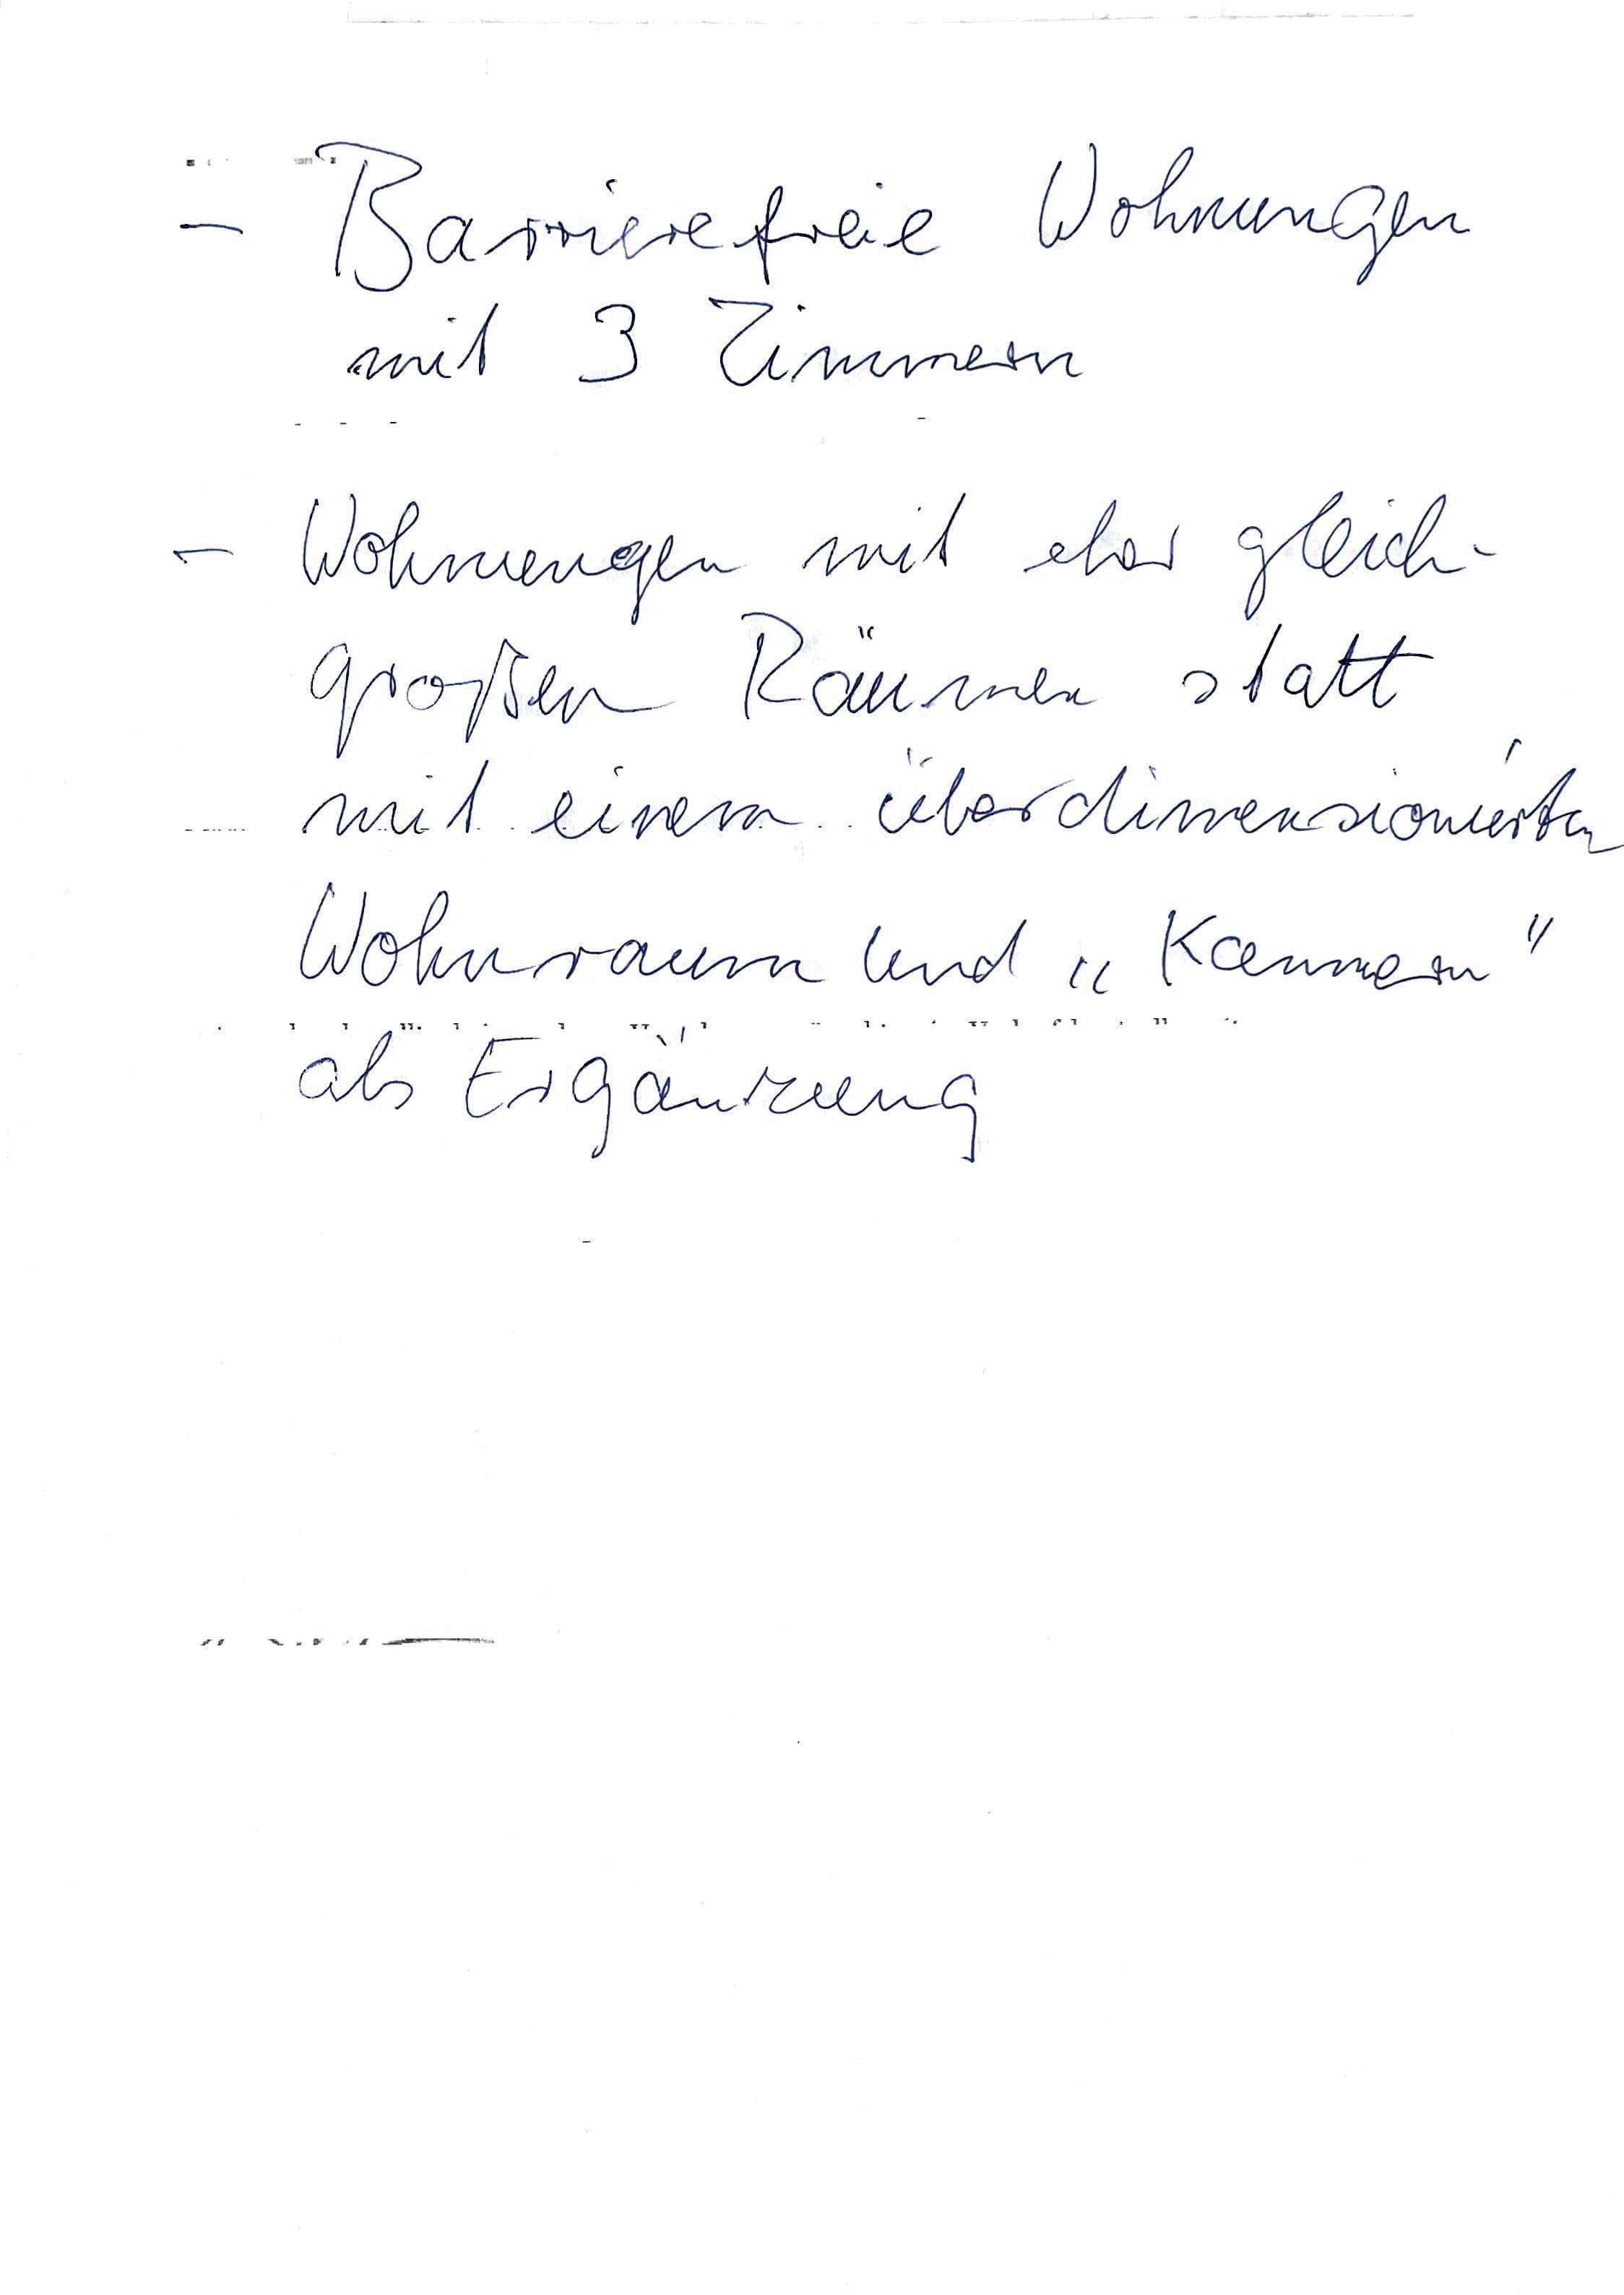 - Barrierefreie Wohnungen
mit 3 Zimmern
- Wohnungen mit eher gleich-
großen Räumen statt
mit einem überdimensionierten
Wohnraum und „Kammern"
als Ergänzung